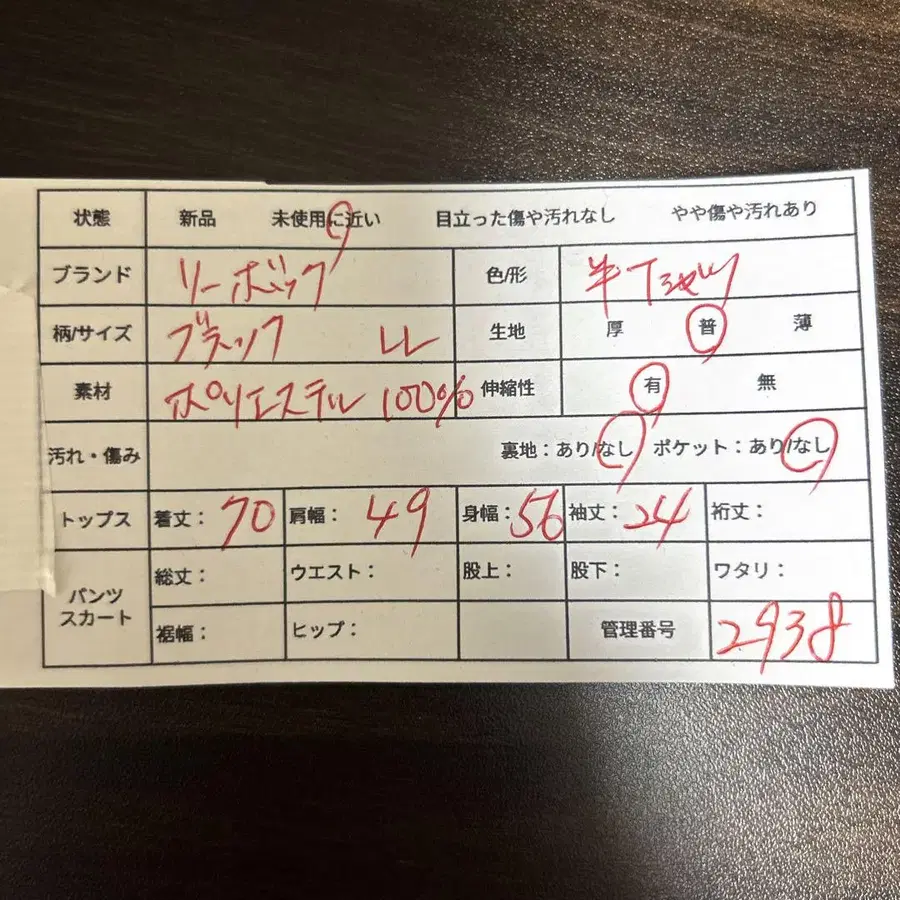 状態 新品 未使用に近い 目立った傷や汚れなし やや傷や汚れあり
ブランド リーボック 色/形 半Tシャツ
柄/サイズ ブラック LL 生地 厚 普 薄
素材 ポリエステル 100% 伸縮性 有 無
汚れ・傷み 裏地：あり/なし ポケット：あり/なし
トップス 着丈：70 肩幅：49 身幅：56 袖丈：24 裄丈：
パンツ 総丈： ウエスト： 股上： 股下： ワタリ：
スカート 裾幅： ヒップ： 管理番号 2938